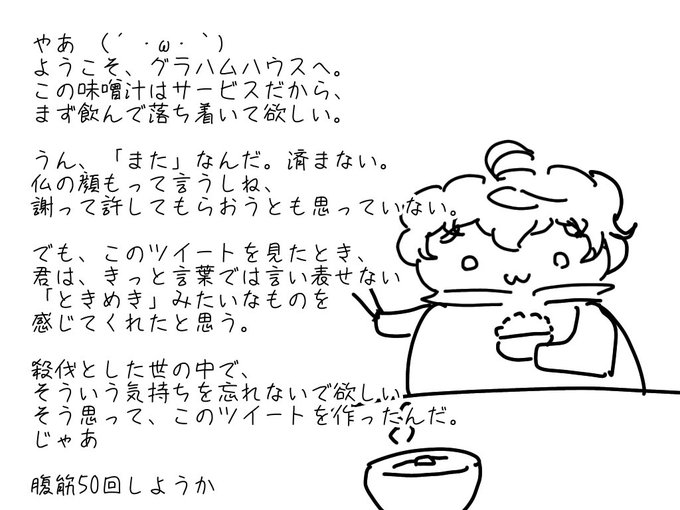 やあ (´・ω・`)
ようこそ、グラハムハウスへ。
この味噌汁はサービスだから、
まず飲んで落ち着いて欲しい。
うん、「また」なんだ。済まない。
仏の顔もって言うしね、
謝って許してもらおうとも思っていない。
でも、このツイートを見たとき、
君は、きっと言葉では言い表せない
「ときめき」みたいなものを
感じてくれたと思う。
殺伐とした世の中で、
そういう気持ちを忘れないで欲しい
そう思って、このツイートを作ったんだ。
じゃあ
腹筋50回しようか